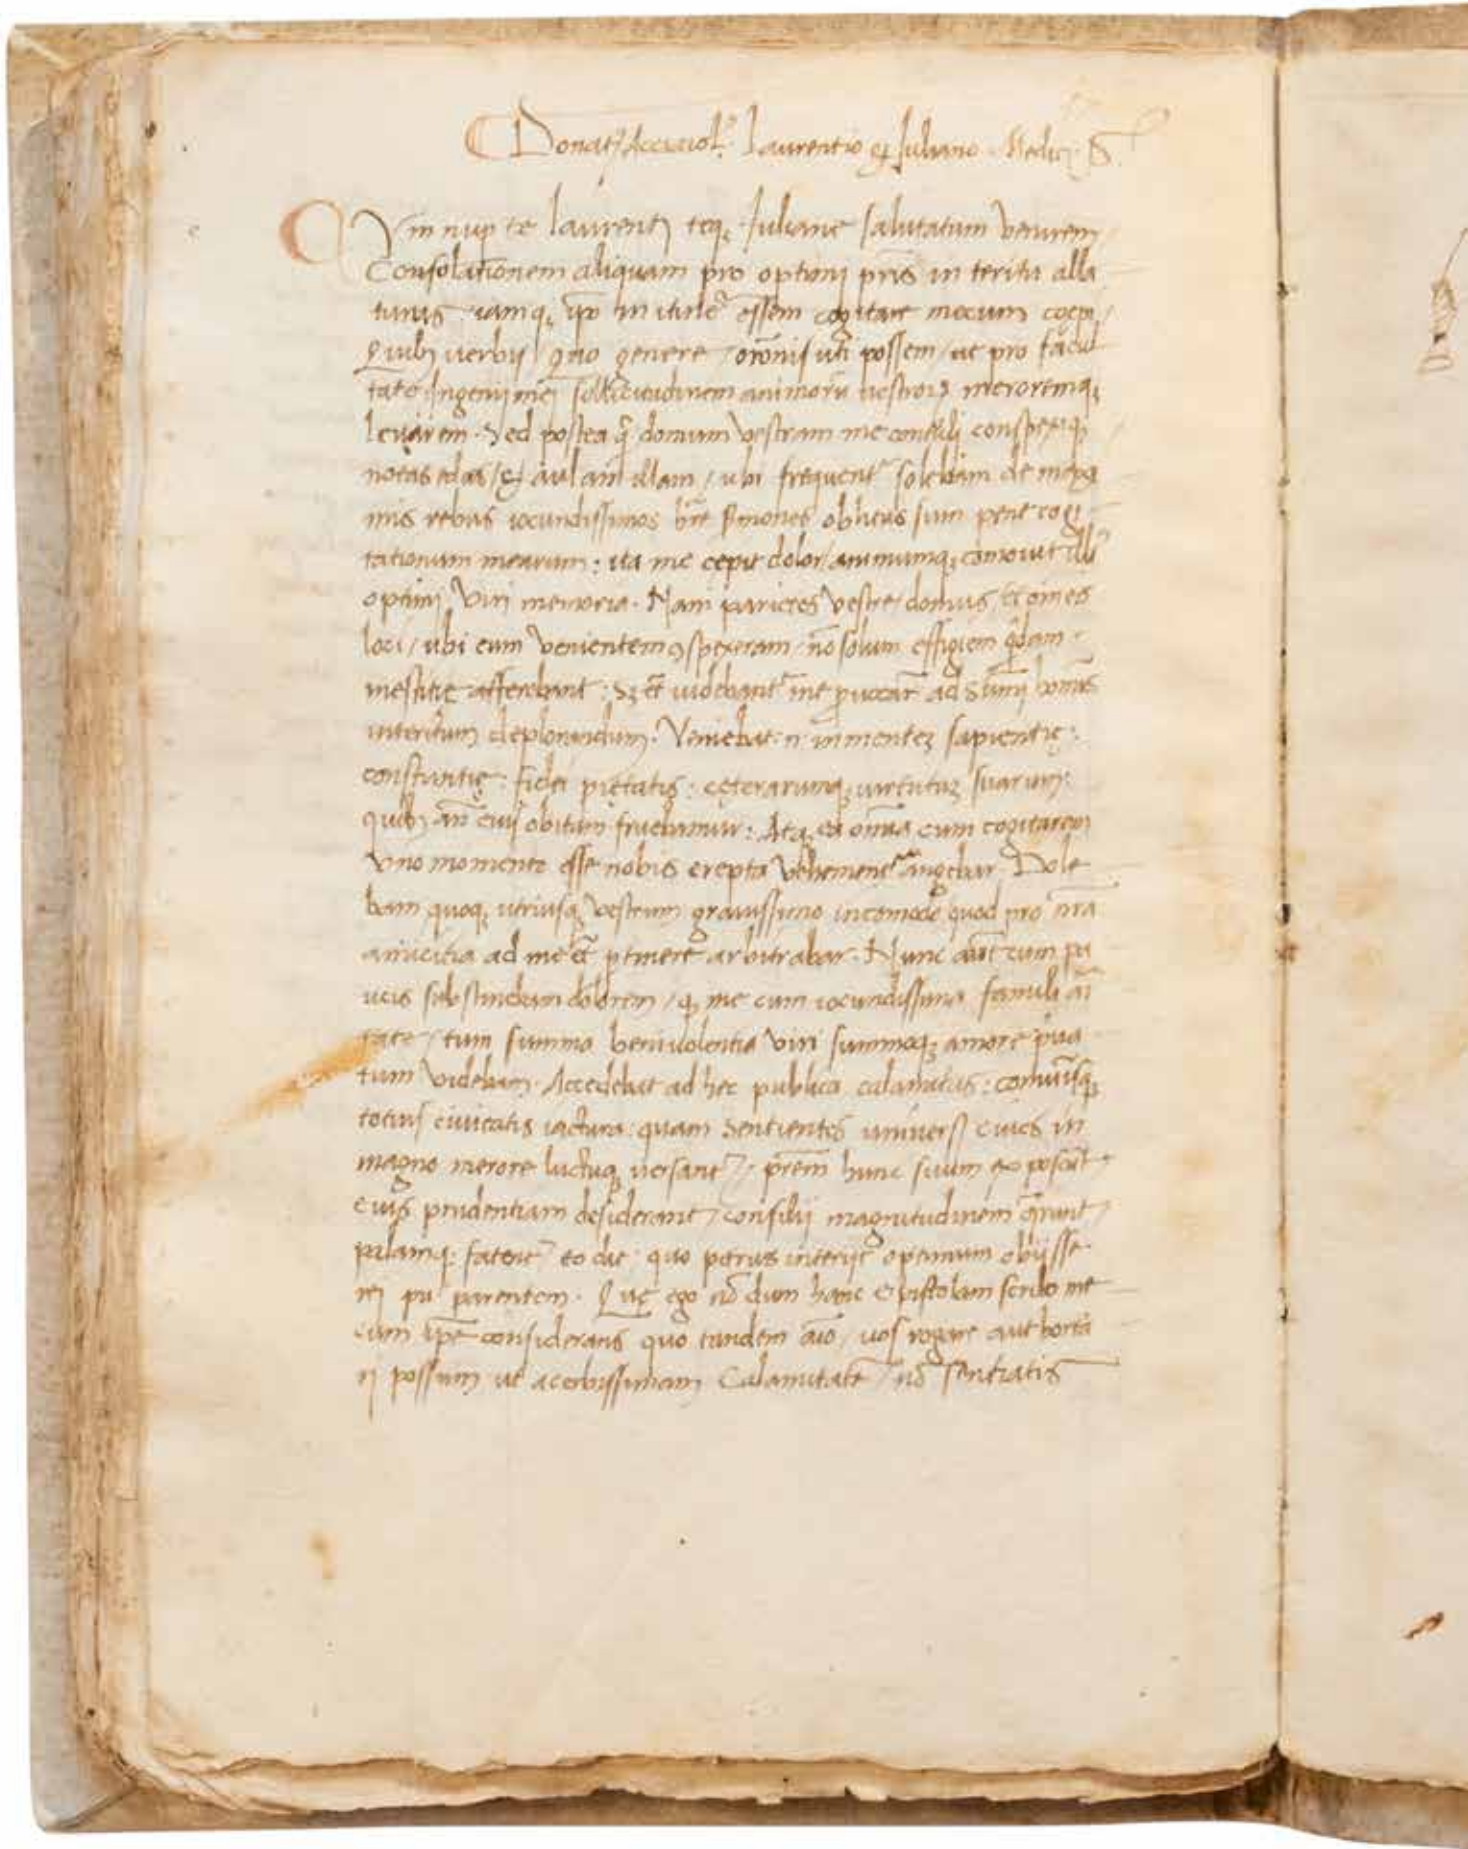 Donat⁹ Acciaiol⁹ Laurentio & Juliano Medic; S.
QVm nup te laurenti teq; Juliane salutatum venirem
Consolationem aliquam pro optimi pris in teritu alla
turus iamq; in itine essem cogitare mecum coepi
Quib; verbis quo genere orõnis uti possem ut pro facul
tate Ingenij mei sollicitudinem animorũ vestroꝝ meroremq;
levarem. Sed postea q̃ domum vestram me contuli conspexiq;
notas edas & aulam illam ubi frequent solebam de
mis rebus iocundissimos hr̃e smones oblitus sum pene cogi
tationum mearum: ita me cepit dolor animumq; comovit illi
optimi Viri memoria. Nam parietes vestre domus et oines
loci ubi eum venientem ꝯspexeram nõ solum effigiem q̃dam
mestitie afferebant: Sꝫ et̃ videbant me p̱vocar̃ ad Sũmi homĩs
interitum deplorandum. Veniebat .n. in mentez sapientię:
constantię: fidei pietatis: ceterarumq; virtutuꝫ suarum:
quib; an̄ eius obitum fruebamur: Atq; ea omnia cum cogitarem
Vno momento esse nobis erepta Vehement angebar. Dole
bam quoq; utriusq; vestrum gravissimo incomodo quod pro nr̃a
amicitia ad me et̃ p̱tinere arbitrabar. Nunc aut̃ cum
substinebam dolorem q; me cum iocundissima famili ari
tate tum summa benivolentia Viri summoq; amore
tum Videbam. Accedebat ad hec publica calamitas: comunisq;
totius civitatis iactura: quam Sentientes universi cives in
magno merore luctuq; versant̃ pr̃em hunc suum exposcũt
eius prudentiam desiderant consilij magnitudinem q̃runt
palamq; fatent̃ eo die quo petrus interijt optimum obijsse
rei pu parentem. Quę ego nõ dum hanc Epistolam scribo me
cum ip̃e considerans quo tandem aĩo vos rogare aut horta
ri possum ut acerbissimam Calamitatẽ nõ Sentiatis